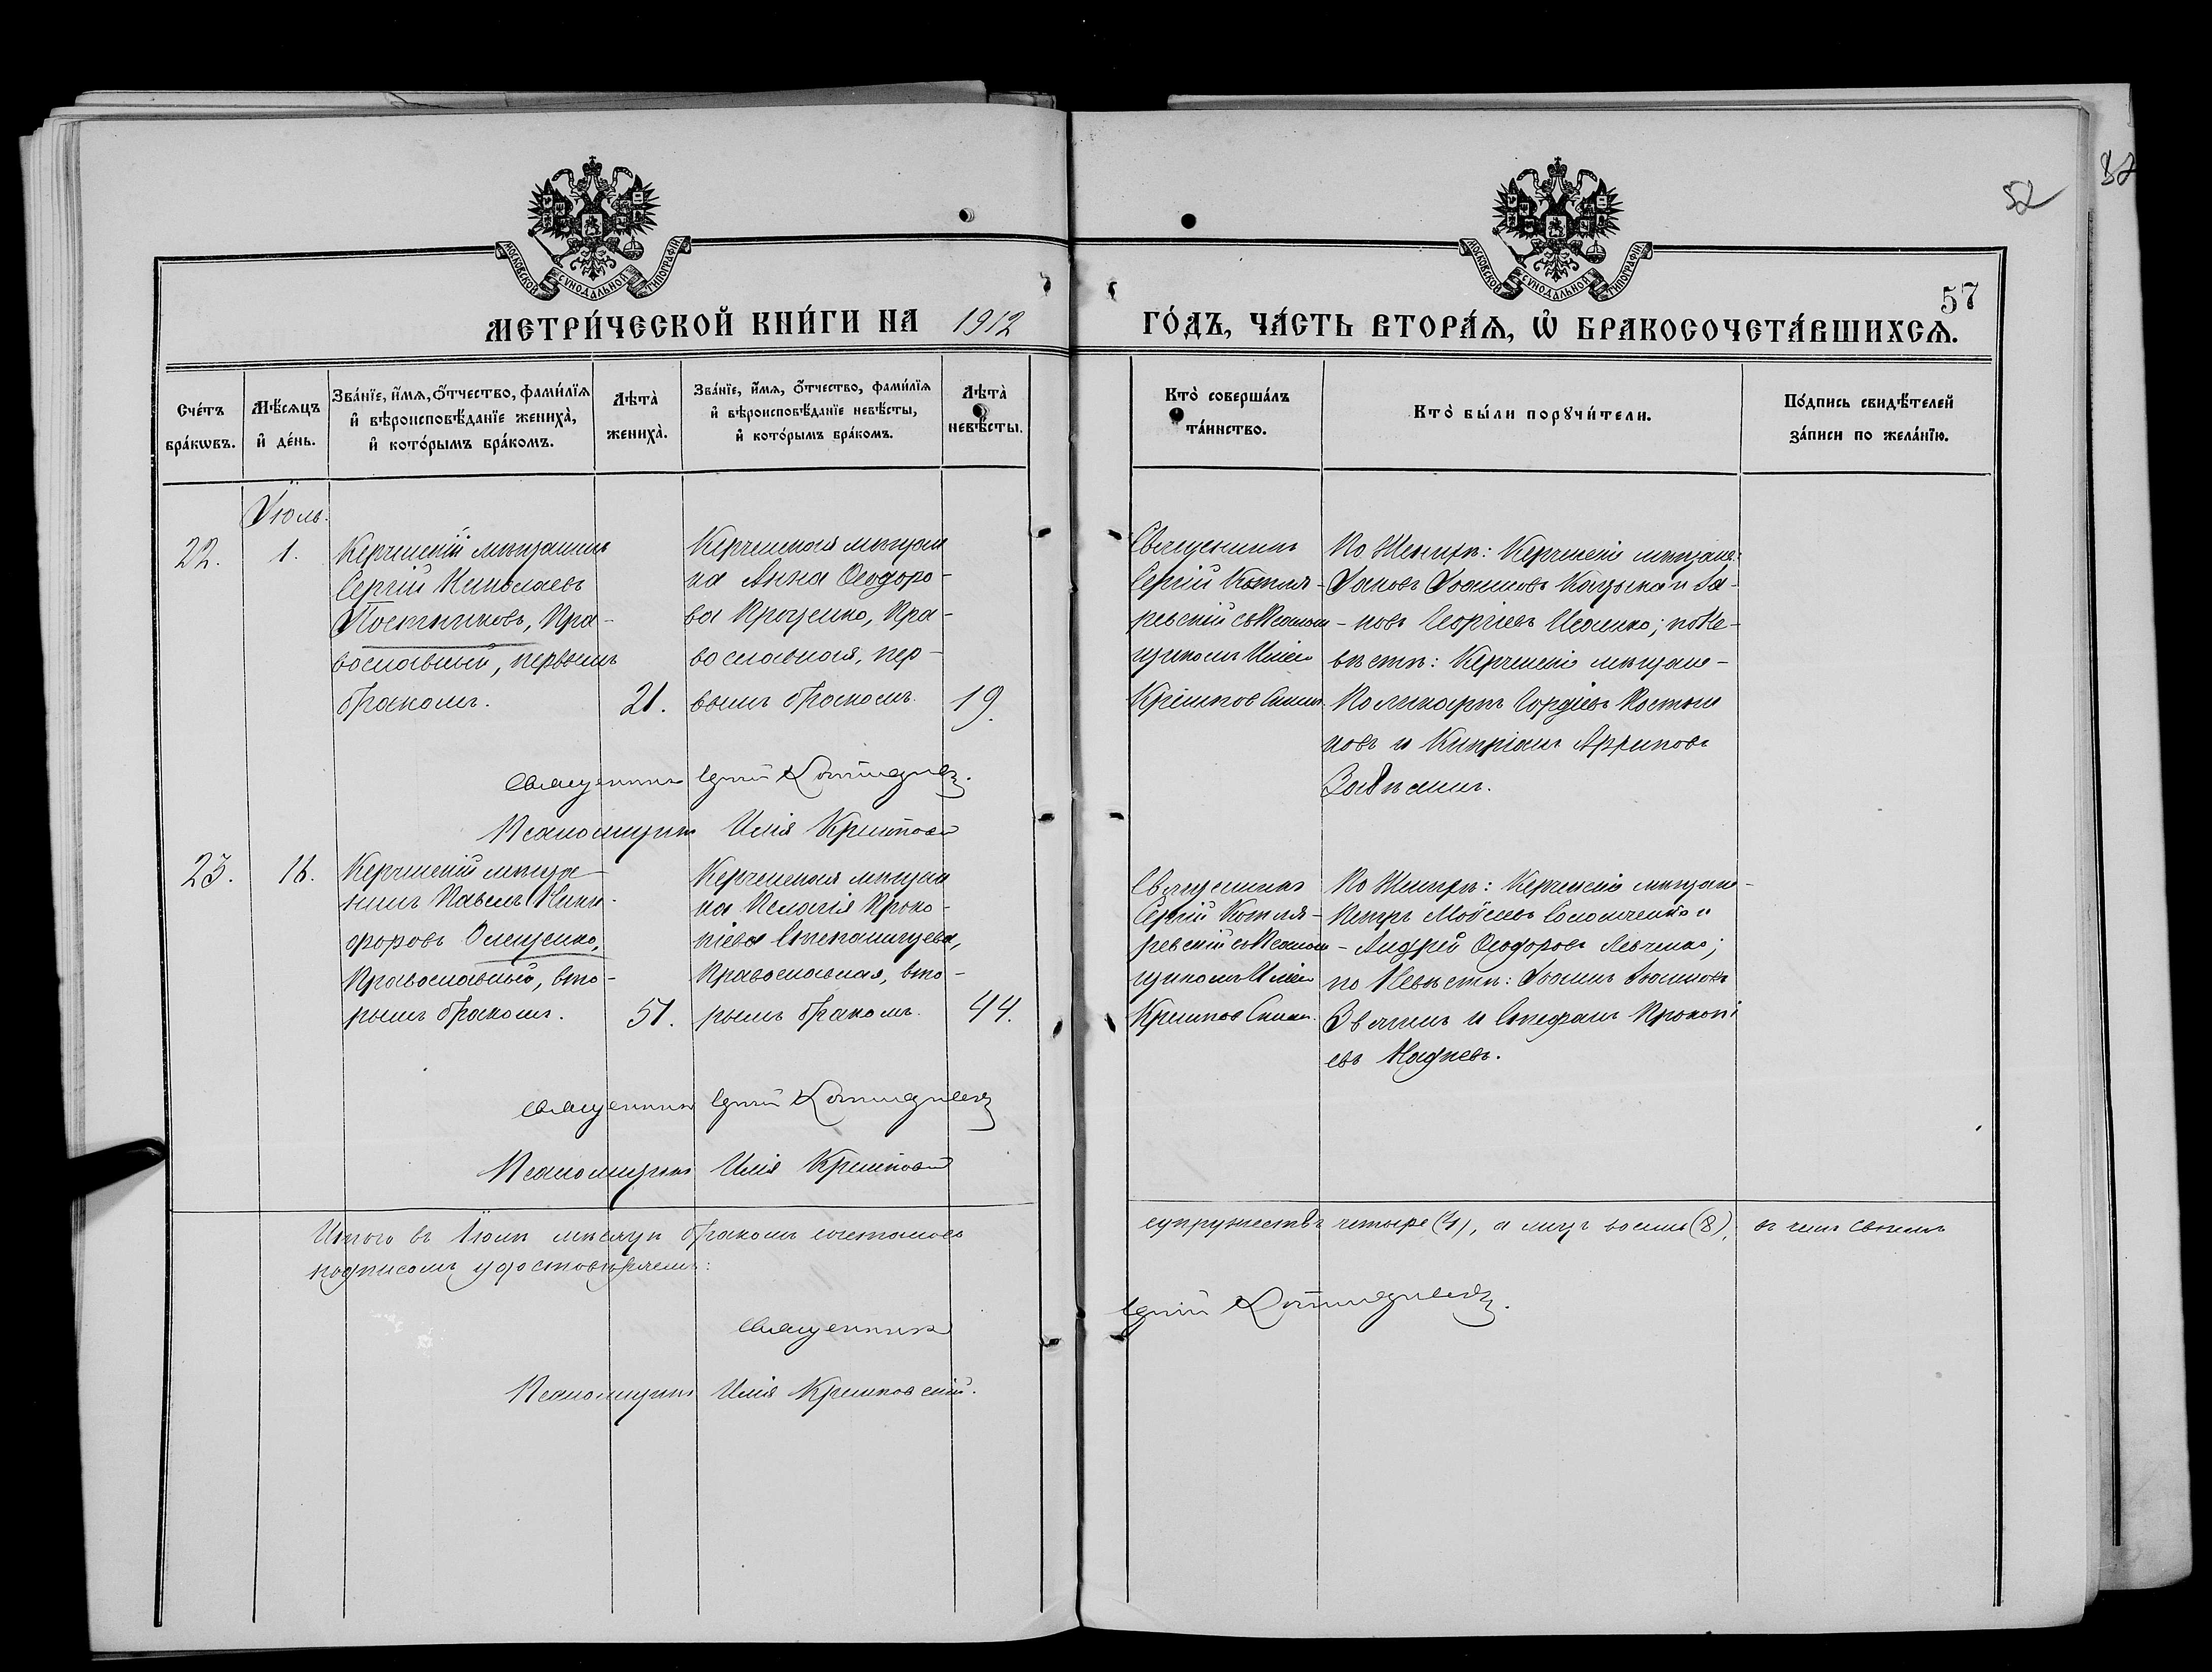 52
57
МОСКОВСКОЙ СУНОДАЛЬНОЙ ТИПОГРАФІИ
МОСКОВСКОЙ СУНОДАЛЬНОЙ ТИПОГРАФІИ
МЕТРИ́ЧЕСКОЙ КНИ́ГИ НА 1912 ГО́ДЪ, ЧА́СТЬ ВТОРА́Я, Ѿ БРАКОСОЧЕТА́ВШИХСЯ.
Сче́тъ бра́кѡвъ.
Мѣ́сяцъ и҆ де́нь.
Зва́нїе, и҆́мя, ѻ҆́тчество, фами́лїя
и҆ вѣроисповѣ́данїе жениха̀,
и҆ кото́рымъ бра́комъ.
Лѣта̀
жениха̀.
Зва́нїе, и҆́мя, ѻ҆́тчество, фами́лїя
и҆ вѣроисповѣ́данїе невѣ́сты,
и҆ кото́рымъ бра́комъ.
Лѣта̀
невѣ́сты.
Кто̀ соверша́лъ
та́инство.
Кто̀ бы́ли порꙋчи́тели.
По́дпись свидѣ́телей
за́писи по жела́нїю.
Іюль.
22.
1.
Керченскій мѣщанинъ
Сергій Николаевъ
Постниковъ, Пра-
вославный, первымъ
бракомъ.
21.
Керченская мѣщан
ка Анна Ѳеодоро-
ва Проценко, Пра-
вославная, пер-
вымъ бракомъ.
19.
Священникъ
Сергій Котля-
ревскій съ Псалом
щикомъ Иліею
По Женихѣ: Керченскіе мѣщане:
Іаковъ Іоанновъ и Іа-
ковъ Георгіевъ по Не-
вѣстѣ: Керченскіе мѣщане-
Поликарпъ Гордіевъ
новъ и Кипріанъ
Священникъ Сергій Котляревскій.
Псаломщикъ Илія
23.
16.
Керченскій мѣща-
нинъ Павелъ Ники-
форовъ Олещенко,
Православный, вто-
рымъ бракомъ.
51.
Керченская мѣщан
ка Пелагія Проко-
піева
Православная, вто-
рымъ бракомъ.
44.
Священникъ
Сергій Котля-
ревскій съ Псалом
щикомъ Иліею
По Женихѣ: Керченскіе мѣщане-
Петръ Моѵсеевъ и
Андрей Ѳеодоровъ Левченко;
по Невѣстѣ: Іоаннъ Іоанновъ
и Стефанъ Прокопі
евъ
Священникъ Сергій Котляревскій
Псаломщикъ Илія
Итого въ Іюлѣ мѣсяцѣ бракомъ сочеталось супружествъ четыре (4), а лицъ восемь (8), въ чемъ своимъ
подписомъ удостовѣряемъ:
Священникъ Сергій Котляревскій.
Псаломщикъ Илія